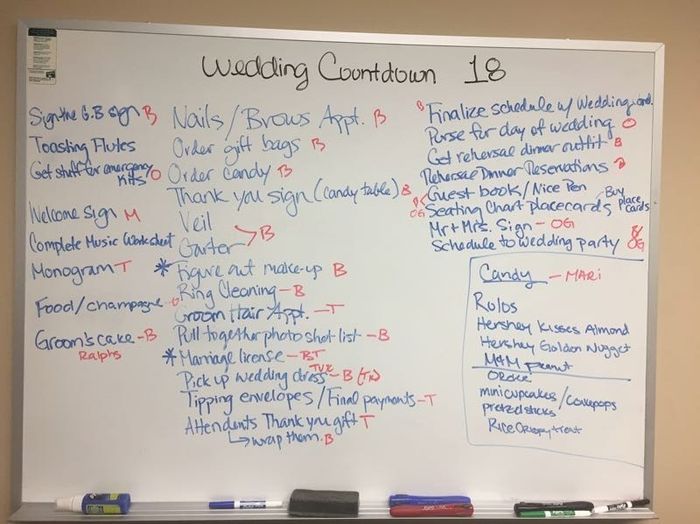 Wedding Countdown 18
Sign the G.B sign B
Toasting Flutes
Get stuff for emergency
kits O
Welcome Sign M
Complete Music Worksheet
Monogram T
Food/champagne
Groom's cake - B
Ralphs
Nails/Brows Appt. B
Order gift bags B
Order candy B
Thank you sign (candy table) B
Veil
Garter > B
* Figure out make-up B
Ring Cleaning - B
Groom Hair Appt. - T
Pull together photo shot list - B
* Marriage license - BT
Pick up wedding dress - B (TK)
TUX
Tipping envelopes/Final payments - T
Attendents Thank you gift T
↳ wrap them. B
B Finalize schedule w/ Wedding
Purse for day of wedding O
Get rehersal dinner outfit B
Rehersal Dinner Reservations B
Guest book/Nice Pen
OG Seating Chart placecards - Buy place cards
Mr + Mrs. Sign - OG
Schedule to wedding party B/OG
Candy - MARi
Rolos
Hershey Kisses Almond
Hershey Golden Nugget
M&M peanut
Order
mini cupcakes/cakepops
pretzel sticks
Rice Crispy treat